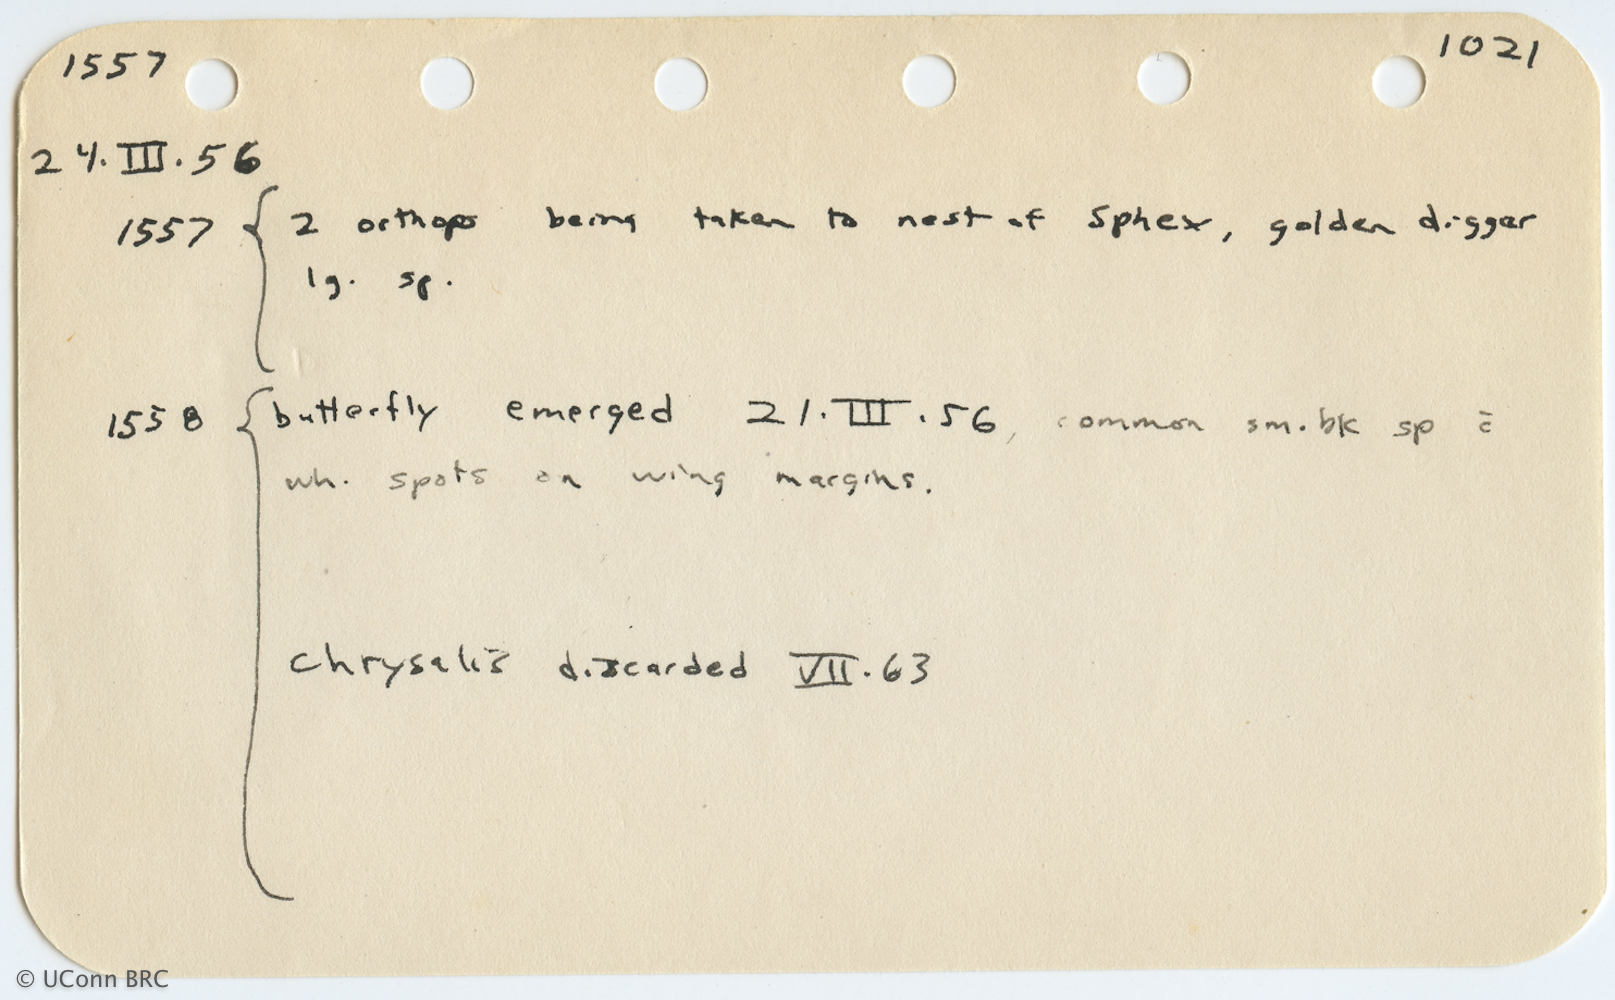 1557 1021
24.III.56
1557 { 2 orthops being taken to nest of Sphex, golden digger
lg. sp.
1558 { butterfly emerged 21.III.56, common sm. bk sp c̄
wh. spots on wing margins.
Chrysalis discarded VII.63
© UConn BRC